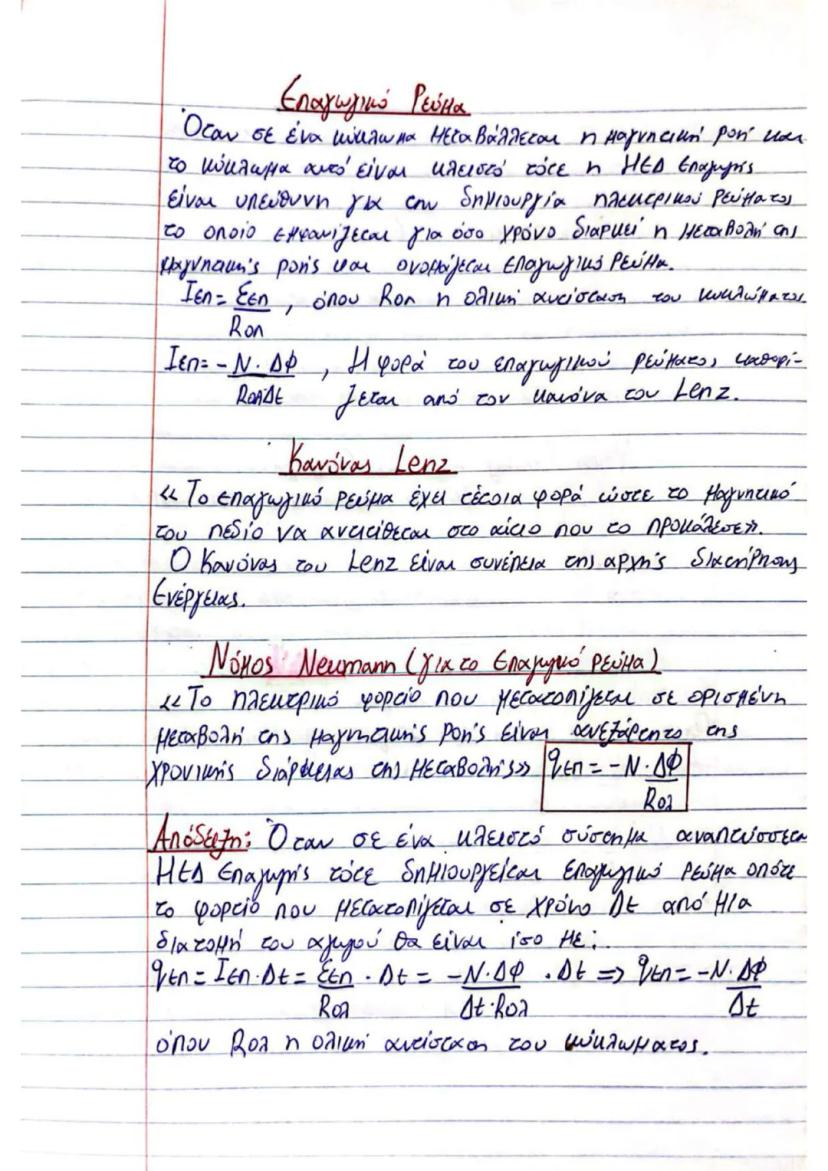 Επαγωγικό Ρεύμα
Όταν σε ένα κύκλωμα μεταβάλλεται η μαγνητική ροή και
το κύκλωμα αυτό είναι κλειστό τότε η ΗΕΔ επαγωγής
είναι υπεύθυνη για την δημιουργία ηλεκτρικού ρεύματος
το οποίο εμφανίζεται για όσο χρόνο διαρκεί η μεταβολή της
μαγνητικής ροής και ονομάζεται επαγωγικό ρεύμα.
Iεπ = Eεπ / Rολ , όπου Rολ η ολική αντίσταση του κυκλώματος
Iεπ = - N · ΔΦ / RολΔt , Η φορά του επαγωγικού ρεύματος καθορί-
ζεται από τον κανόνα του Lenz.
Κανόνας Lenz
«Το επαγωγικό ρεύμα έχει τέτοια φορά ώστε το μαγνητικό
του πεδίο να αντιτίθεται στο αίτιο που το προκάλεσε».
Ο Κανόνας του Lenz είναι συνέπεια της αρχής διατήρησης
Ενέργειας.
Νόμος Neumann (για το επαγωγικό ρεύμα)
«Το ηλεκτρικό φορτίο που μετατοπίζεται σε ορισμένη
μεταβολή της μαγνητικής ροής είναι ανεξάρτητο της
χρονικής διάρκειας της μεταβολής» qεπ = - N · ΔΦ / Rολ
Απόδειξη: Όταν σε ένα κλειστό σύστημα αναπτύσσεται
ΗΕΔ επαγωγής τότε δημιουργείται επαγωγικό ρεύμα οπότε
το φορτίο που μετατοπίζεται σε χρόνο Δt από μια
διατομή του αγωγού θα είναι ίσο με:
qεπ = Iεπ · Δt = Eεπ / Rολ · Δt = -N · ΔΦ / Δt · Rολ · Δt => qεπ = -N · ΔΦ / Δt
όπου Rολ η ολική αντίσταση του κυκλώματος.